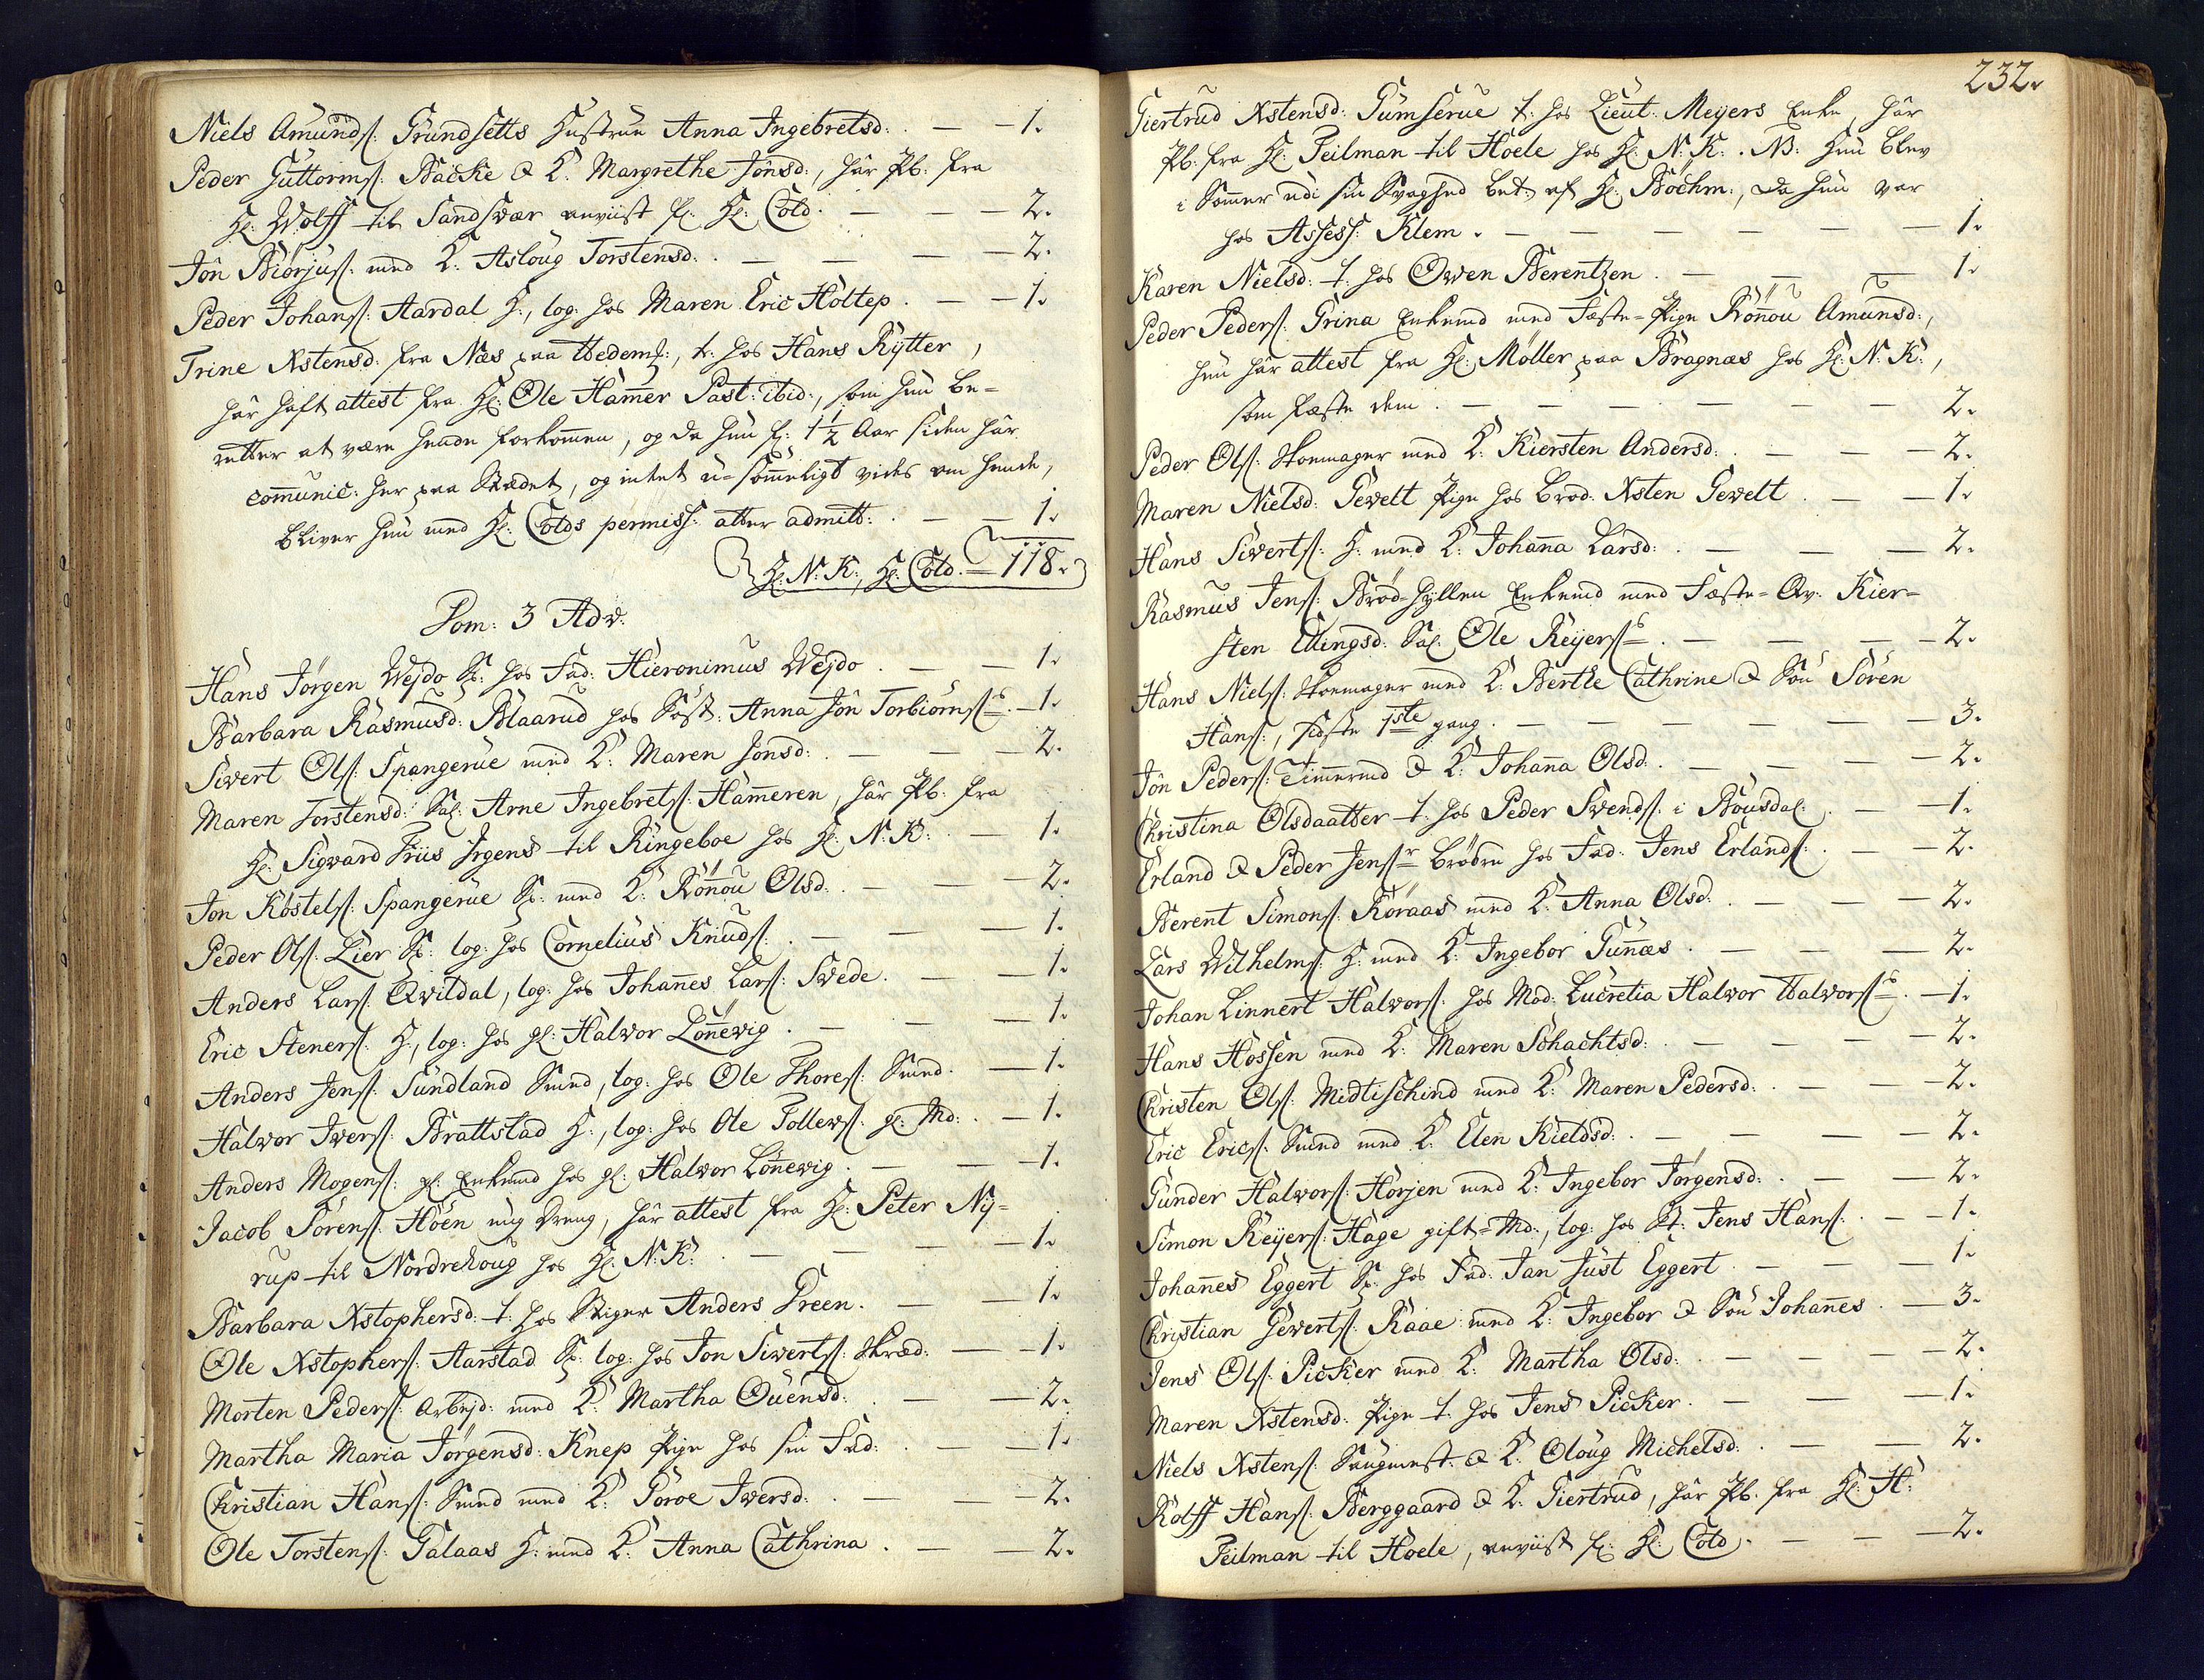 Niels Amundſ: Grundsetts Hustrue Anna Ingebretsd: . — — 1.
Peder Guttormſ: Backe & K: Margrethe Jonsd:, har Pb: fra
Hr: Wolff til Sandswær anviist f: Hr: Cold . — — — 2.
Jon Biörjuſ: med K: Aslöug Torstensd: . — — — 2.
Peder Johanſ: Aardal H:, log: hos Maren Eric Holtep . — — 1.
Trine Xstensd: fra Næs paa Hedemſ:, t: hos Hans Rytter,
har haft attest fra Hr: Ole Hamer Past: ibid:, som hun be-
retter at være hende forkommen, og da hun f: 1½ Aar siden har
communic: her paa Stædet, og intet u-sømmeligt vides om hende,
bliver hun med Hr: Colds permiss: atter admitt: . — — 1.
Hr: N: K:, Hr: Cold . — 118.
Dom: 3 Adv:
Hans Jörgen Wejdo S: hos Fad: Hieronimus Wejdo . — — 1.
Barbara Rasmusd: Blaarud hos Søst: Anna Jon Torbiörnſs . — 1.
Sivert Olſ: Spangerue med K: Maren Jonsd: . — — — 2.
Maren Torstensd: Sal: Arne Ingebretſ: Hameren, har Pb: fra
Hr: Sigvard Friis Irgens til Ringeboe hos Hr: N: K: . — 1.
Jon Köstelſ: Spangerue S: med K: Rönnou Olsd: . — — — 2.
Peder Olſ: Lier S: log: hos Cornelius Knudſ: . — — — 1.
Anders Larſ: Qvildal, log: hos Johanes Larſ: Swede . — — 1.
Eric Stenerſ: H:, log: hos gl: Halvor Lönnevig . — — — 1.
Anders Jenſ: Sundland Smed, log: hos Ole Thoreſ: Smed . — 1.
Halvor Iverſ: Brattstad H:, log: hos Ole Tollevſ: gl: Md: . — 1.
Anders Mogenſ: gl: Enkemd hos gl: Halvor Lönnevig . — — 1.
Jacob Sörenſ: Höen ung Dreng, har attest fra Hr: Peter Ny-
rup til Nordrehoug hos Hr: N: K: . — — — — 1.
Barbara Xstophersd: t: hos Stiger Anders Green . — — 1.
Ole Xstopherſ: Aarstad S: log: hos Jon Sivertſ: Skræd: — — 1.
Morten Pederſ: Arbejd: med K: Martha Ouensd: . — — 2.
Martha Maria Jörgensd: Knep Pige hos sin Fad: . — — 1.
Christian Hanſ: Smed med K: Goroe Iversd: . — — — 2.
Ole Torstenſ: Galaas H: med K: Anna Cathrina . — — 2.
232.
Giertrud Xstensd: Gumserue t: hos Lieut: Meyers Enke, har
Pb: fra Hr: Feilman til Hoele hos Hr: N: K: . NB: Hun blev
i Sommer udi sin Svaghed bet: af Hr: Böchm:, da hun var
hos Assess: Klem . — — — — — — 1.
Karen Nielsd: t: hos Owen Berentzen . — — — 1.
Peder Pederſ: Grina Enkemd med Fæste-Pige Rönnou Amunsd:,
hun har attest fra Hr: Möller paa Bragnæs hos Hr: N: K:,
som fæste dem . — — — — — — 2.
Peder Olſ: Skoemager med K: Kiersten Andersd: . — — — 2.
Maren Nielsd: Gewelt Pige hos Brod: Xsten Gewelt . — — 1.
Hans Sivertſ: H: med K: Johanna Larsd: . — — — 2.
Rasmus Jenſ: Bröd-Hyllen Enkemd med Fæste-Qv: Kier-
sten Ellingsd: Sal: Ole Reyerſs . — — — — 2.
Hans Nielſ: Skoemager med K: Berthe Cathrine & Søn Sören
Hanſ:, sidste 1ste gang . — — — — — — 3.
Jon Pederſ: Timmermd & K: Johanna Olsd: . — — — — 2.
Christina Olsdaatter t: hos Peder Svendſ: i Bousdal . — — 1.
Erland & Peder Jenſr Brödre hos Fad: Jens Erlandſ: . — — 2.
Berent Simonſ: Röraas med K: Anna Olsd: . — — — 2.
Lars Wilhelmſ: H: med K: Ingebor Gunnæs . — — — 2.
Johan Linnert Halvorſ: hos Mod: Lucretia Halvor Halvorſs . — 1.
Hans Hossen med K: Maren Schachtsd: . — — — — 2.
Christen Olſ: Midtischind med K: Maren Pedersd: . — — — 2.
Eric Ericſ: Smed med K: Elen Kieldsd: . — — — — 2.
Gunder Halvorſ: Horjen med K: Ingebor Jörgensd: . — — 2.
Simon Reyerſ: Hage gift-Md:, log: hos St: Jens Hanſ: . — — 1.
Johannes Eggert S: hos Fad: Jan Just Eggert . — — — 1.
Christian Gewertſ: Raae med K: Ingebor & Søn Johannes . — 3.
Jens Olſ: Picker med K: Martha Olsd: . — — — — 2.
Maren Xstensd: Pige t: hos Jens Picker . — — — 1.
Niels Xstenſ: Saugmest: & K: Oloug Michelsd: . — — 2.
Rolff Hanſ: Berggaard & K: Giertrud, har Pb: fra Hr: H:
Feilman til Hoele, anviist f: Hr: Cold . — — — 2.